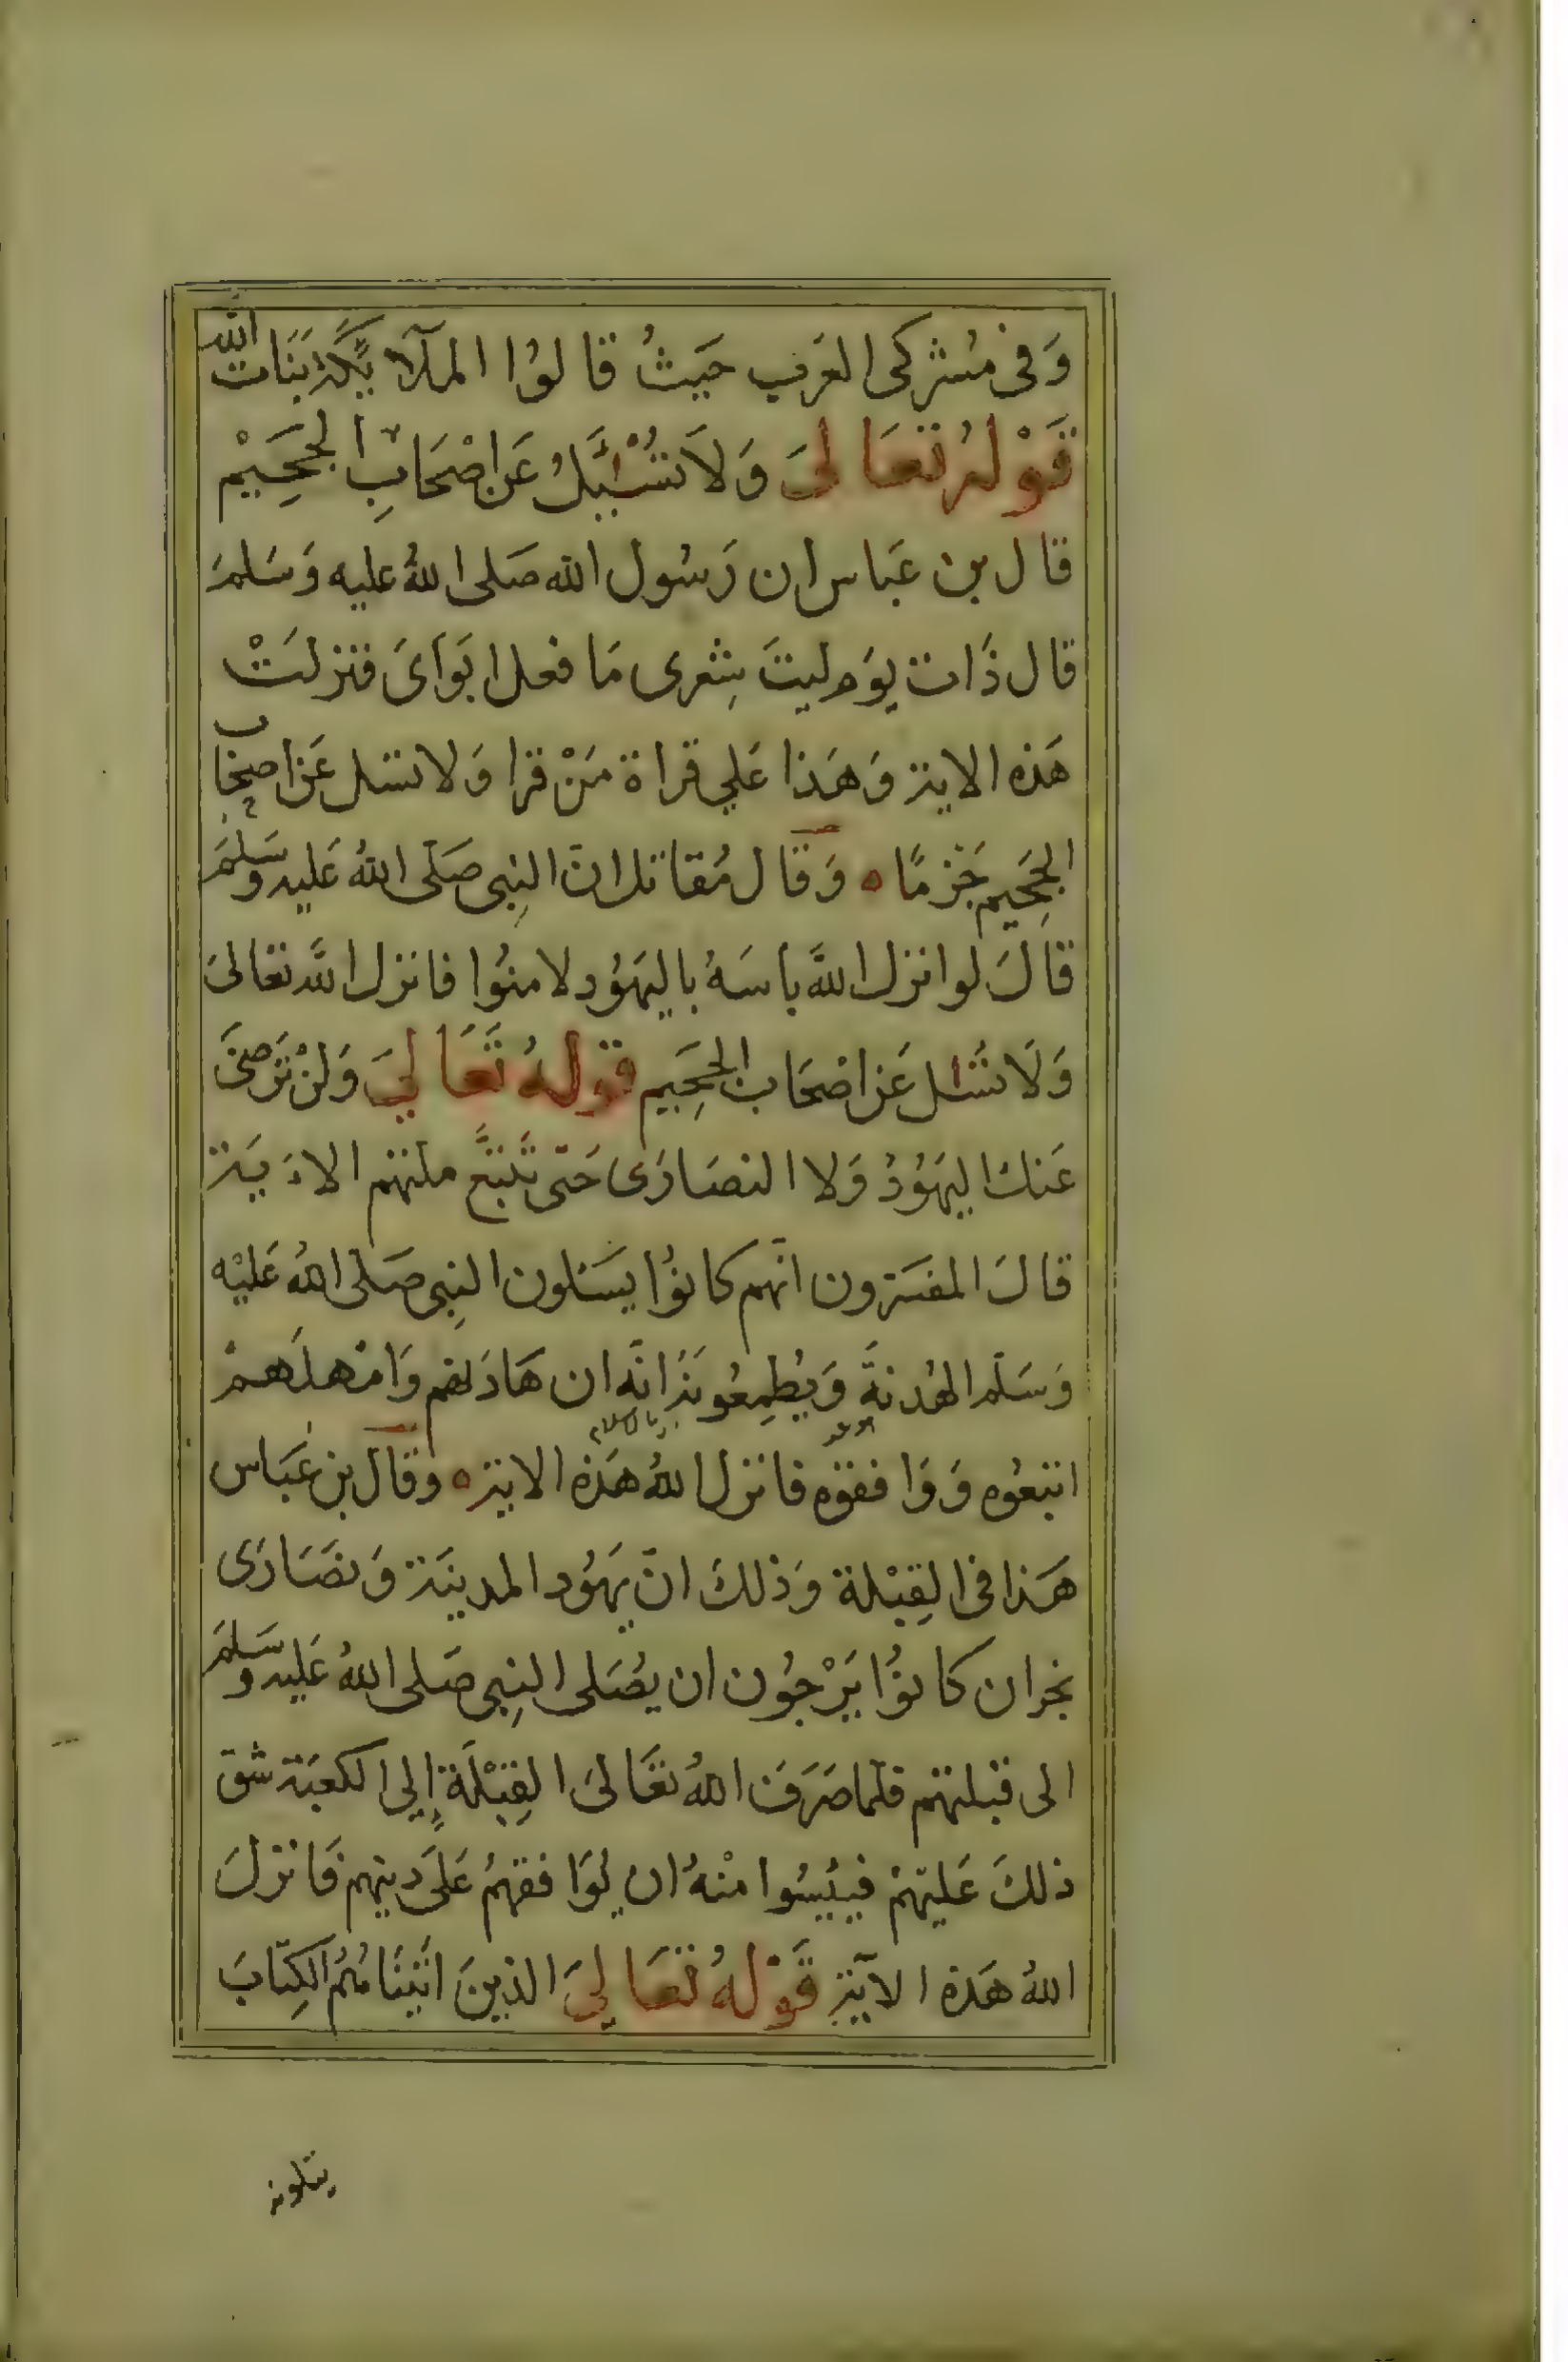 وَفى مُشركى العَرَب حَيثُ قالوُا الملآئِكَة بَنَات الله
قَوْلهُ تعَالىَ وَلاَ تُسْئَلُ عَن اصْحَابِ الجَحِيْم
قال بن عَباس ان رَسُول الله صَلى اللهُ عليه وَسَلمَ
قال ذَات يوَم ليتَ شِعرى مَا فعل ابَوَاىَ فنزلتْ
هَذه الاية وَهَذا عَلي قراة مَنْ قرا وَلا تسئل عَن اصحَاب
الجَحِيم جَزمًا ه وَقال مُقاتل انّ النبِى صَلى اللهُ عَليه وسَلمَ
قالَ لو انزل اللهَّ باسَهُ باليهَوُد لامنوُا فانزل اللهَّ تعَالىَ
وَلَا تسُئل عَن اصْحَاب الجَحِيم قولهُ تَعَالىَ وَلنْ ترَضىَ
عَنك اليهَوُدُ وَلا النصَارَى حَتى تَتبَّعَ ملتهم الاَيَة
قالَ المفسَرون انّهم كانوُا يسَئلون النبِى صَلى اللهُ عَليْه
وَسَلم الهُدنةَ وَيُطمِعُونهُ انّه ان هَادَنهم وَامْهلَهمْ
اتبعُوه وَوَافقوه فانزل اللهُ هَذه الاية ه وقال بن عَبَاس
هَذا فى القِبْلة وَذلكَ انّ يهَوُد المدينَة وَنصَارَى
نجران كانوُا يَرْجُون ان يصُلى النبِى صَلى اللهُ عَليه وسَلمَ
الى قبلتهم فلما صَرَفَ اللهُ تعَالىَ القِبْلَةَ إلى الكعبَة شق
ذلكَ عَليهمْ فيئِسُوا منْهُ ان يُوَافقهُم عَلىَ دينهم فَانزلَ
اللهُ هَذه الآيَة قَوْلهُ تعَالىَ الذينَ اتَيْنَاهُمُ الكِتَابَ
يتلونه